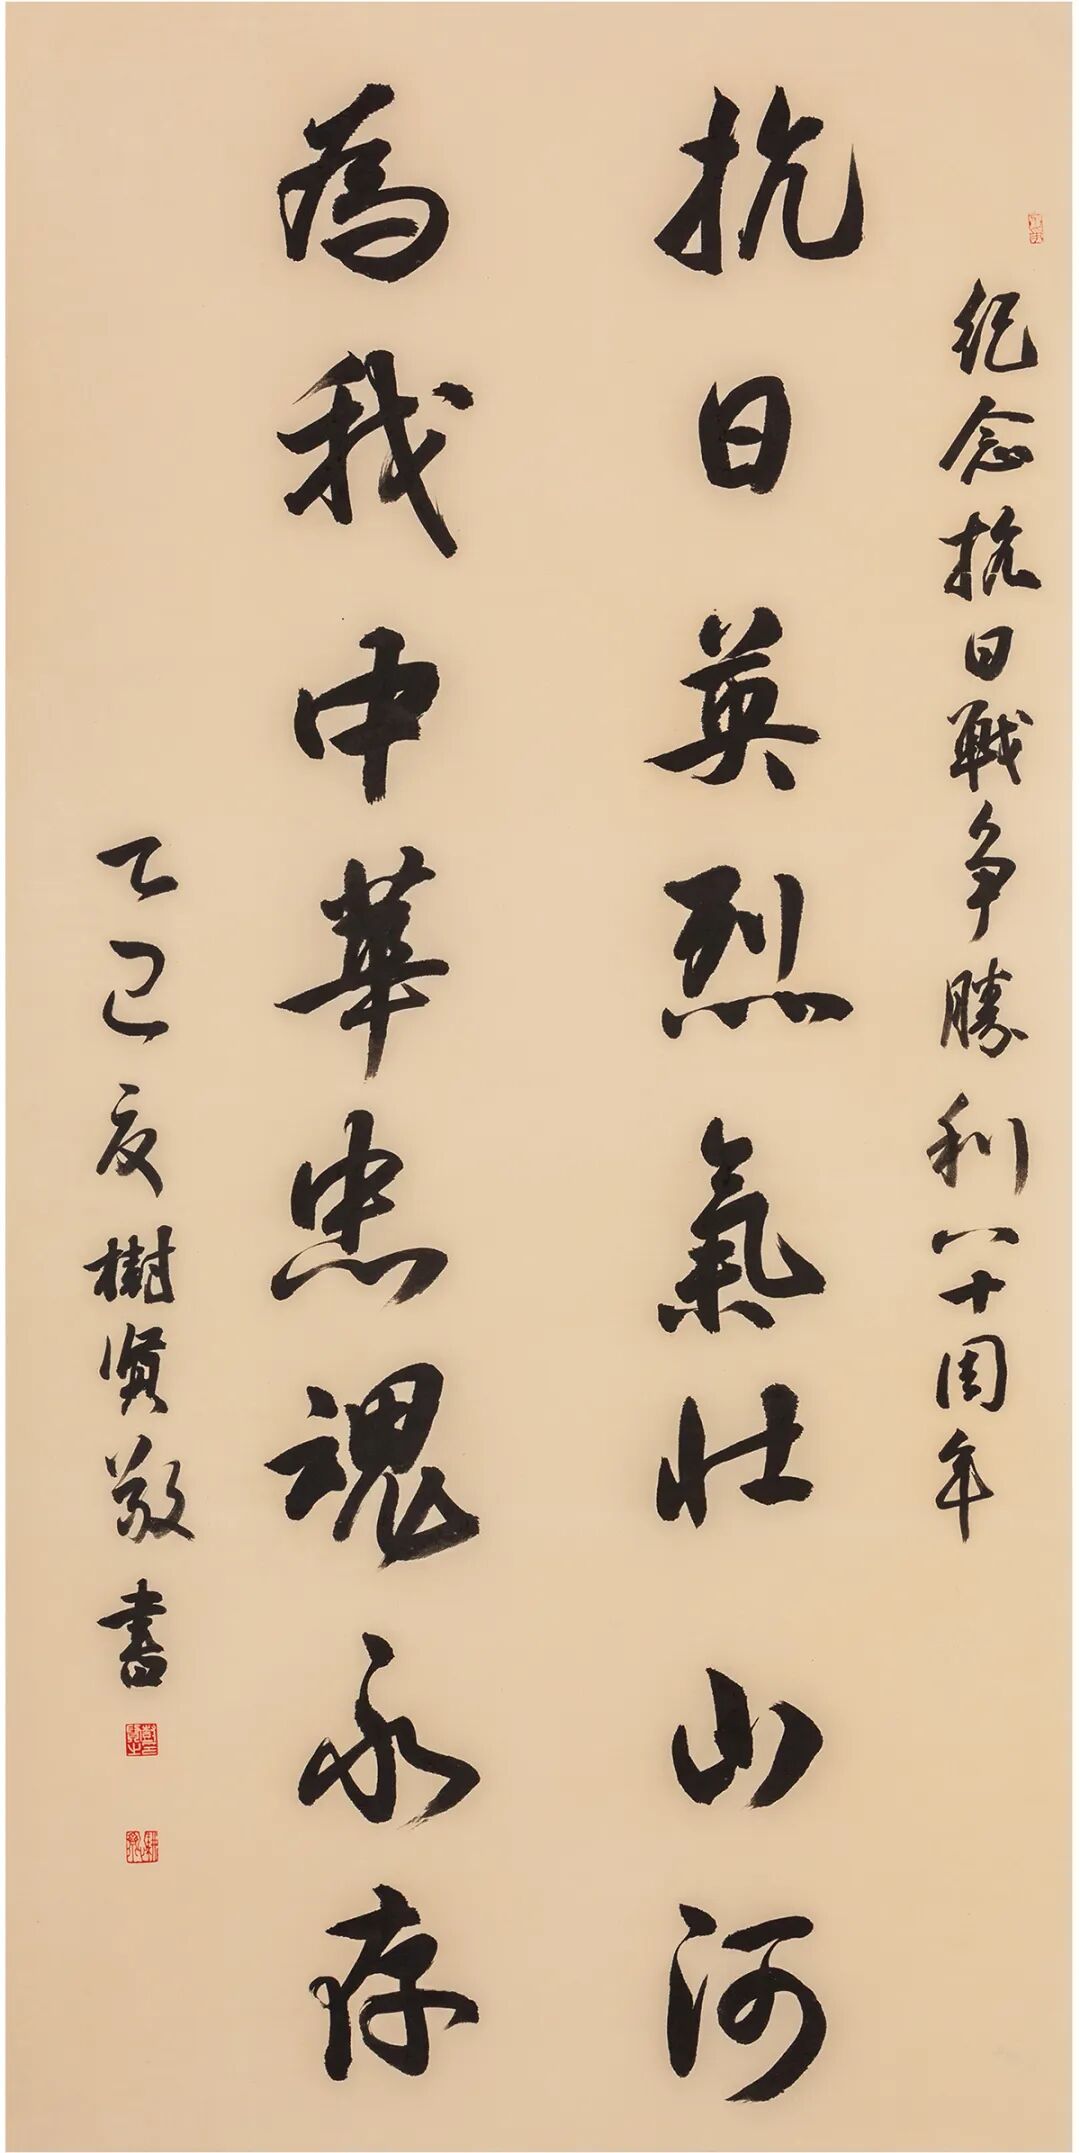 纪念抗日戰争勝利八十周年
抗日英烈氣壯山河
為我中華忠魂永存
乙巳夏樹賢敬書